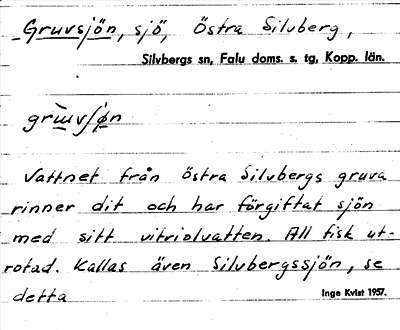 Gruvsjön, sjö, Östra Silvberg,
Silvbergs sn, Falu doms. s. tg, Kopp. län.
Vattnet från Östra Silvbergs gruva
rinner dit och har förgiftat sjön
med sitt vitriolvatten. All fisk ut-
rotad. Kallas även Silvbergssjön, se
detta
Inge Kvist 1957.